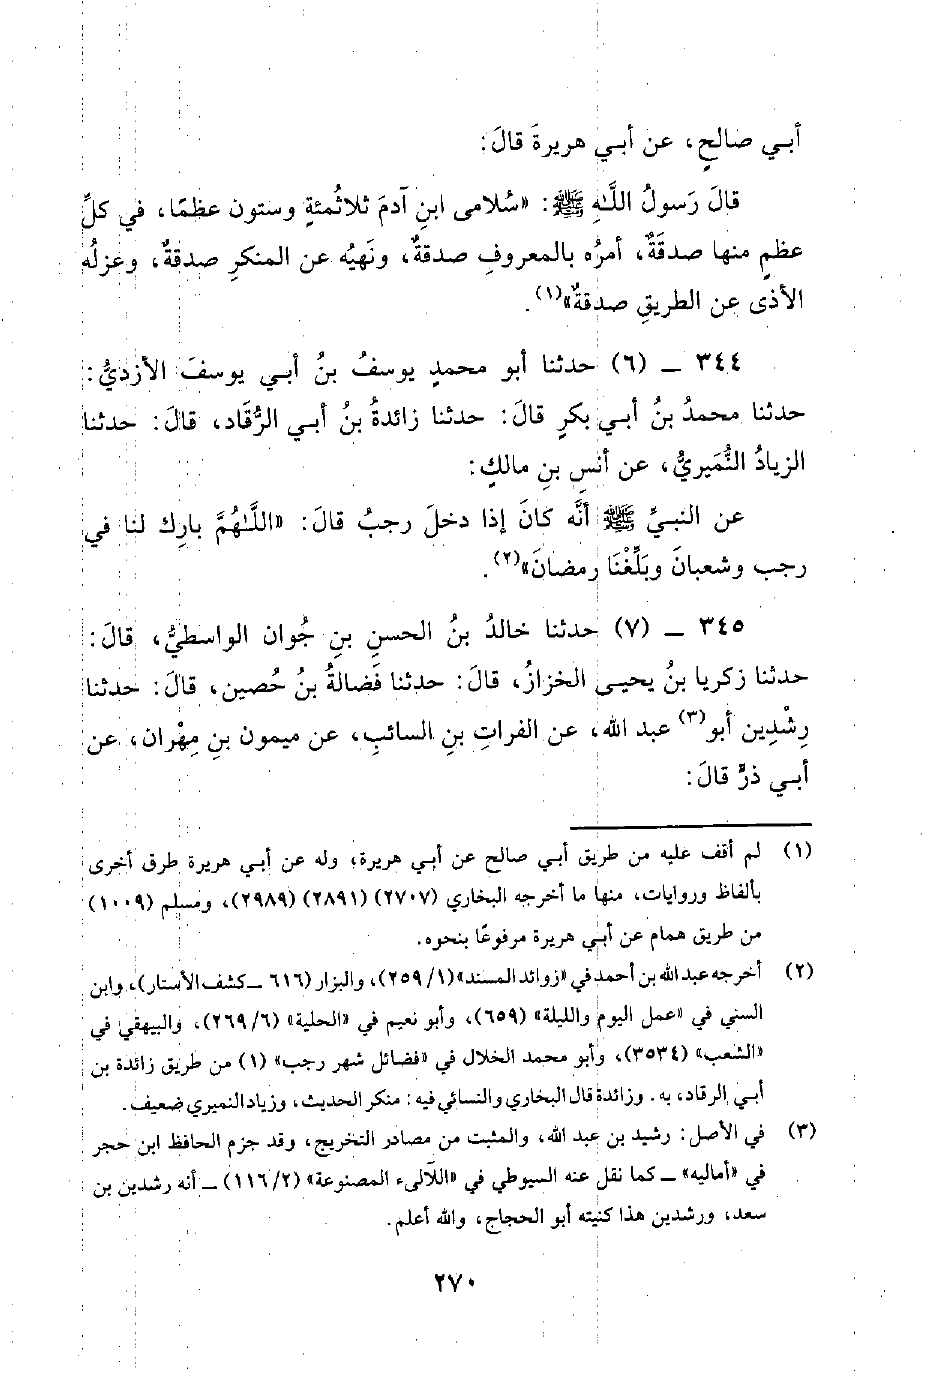 أبي صالحٍ، عن أبي هريرةَ قالَ:
قالَ رَسولُ اللَّهِ ﷺ: «سُلامى ابنِ آدمَ ثلاثُمئةٍ وستون عظمًا، في كلِّ
عظمٍ منها صدقَةٌ، أمرُه بالمعروفِ صدقةٌ، ونَهيُه عن المنكرِ صدقةٌ، وعزلُه
الأذى عن الطريقِ صدقةٌ»(١).
٣٤٤ ـ (٦) حدثنا أبو محمدٍ يوسفُ بنُ أبي يوسفَ الأزديُّ:
حدثنا محمدُ بنُ أبي بكرٍ قالَ: حدثنا زائدةُ بنُ أبي الرُّقَاد، قالَ: حدثنا
الزيادُ النُّمَيريُّ، عن أنسِ بنِ مالكٍ:
عن النبيِّ ﷺ أنَّه كانَ إذا دخلَ رجبُ قالَ: «اللَّهُمَّ بارِك لنا في
رجب وشعبانَ وبَلِّغْنَا رمضانَ»(٢).
٣٤٥ ـ (٧) حدثنا خالدُ بنُ الحسنِ بنِ جُوان الواسطيُّ، قالَ:
حدثنا زكريا بنُ يحيى الخزازُ، قالَ: حدثنا فَضالةُ بنُ حُصين، قالَ: حدثنا
رِشْدِين أبو(٣) عبد الله، عن الفراتِ بنِ السائبِ، عن ميمون بنِ مِهْران، عن
أبي ذرٍّ قالَ:
(١) لم أقف عليه من طريق أبي صالح عن أبي هريرة؛ وله عن أبي هريرة طرق أخرى
بألفاظ وروايات، منها ما أخرجه البخاري (٢٧٠٧) (٢٨٩١) (٢٩٨٩)، ومسلم (١٠٠٩)
من طريق همام عن أبي هريرة مرفوعًا بنحوه.
(٢) أخرجه عبد الله بن أحمد في «زوائد المسند» (١/ ٢٥٩)، والبزار (٦١٦ ـ كشف الأستار)، وابن
السني في «عمل اليوم والليلة» (٦٥٩)، وأبو نعيم في «الحلية» (٦/ ٢٦٩)، والبيهقي في
«الشعب» (٣٥٣٤)، وأبو محمد الخلال في «فضائل شهر رجب» (١) من طريق زائدة بن
أبي الرقاد، به. وزائدة قال البخاري والنسائي فيه: منكر الحديث، وزياد النميري ضعيف.
(٣) في الأصل: رشيد بن عبد الله، والمثبت من مصادر التخريج، وقد جزم الحافظ ابن حجر
في «أماليه» ـ كما نقل عنه السيوطي في «اللآلىء المصنوعة» (٢/ ١١٦) ـ أنه رشدين بن
سعد، ورشدين هذا كنيته أبو الحجاج، والله أعلم.
٢٧٠